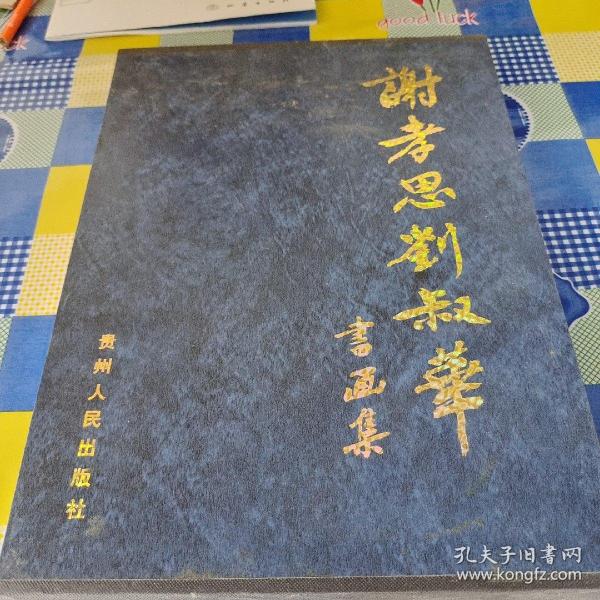 good luck
謝孝思劉叔華
書画集
贵州人民出版社
孔夫子旧書网
www.kongfz.com